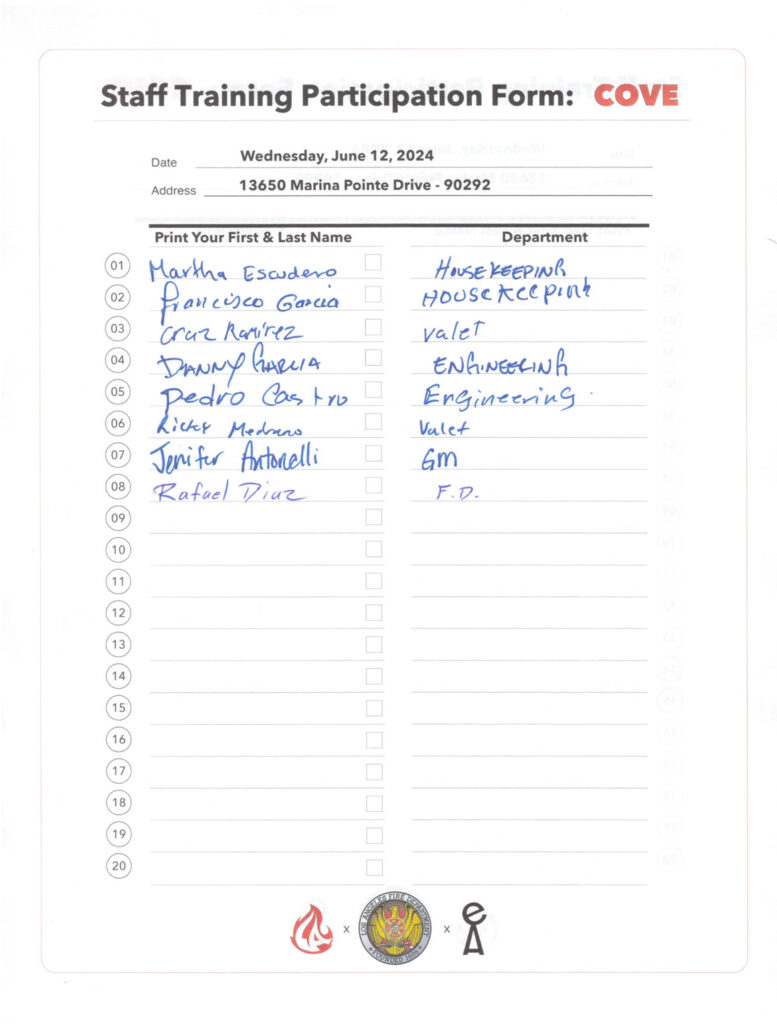 Staff Training Participation Form: COVE
Date Wednesday, June 12, 2024
Address 13650 Marina Pointe Drive - 90292
Print Your First & Last Name Department
01 Martha Escudero HOUSEKEEPING
02 francisco Garcia HOUSEKEEPING
03 Cruz Ramirez valet
04 DANNY GARCIA ENGINEERING
05 Pedro Castro Engineering
06 Ricky Medrano Valet
07 Jenifer Antonelli GM
08 Rafael Diaz F.D.
09
10
11
12
13
14
15
16
17
18
19
20
x x
LOS ANGELES FIRE DEPARTMENT
FOUNDED 1886